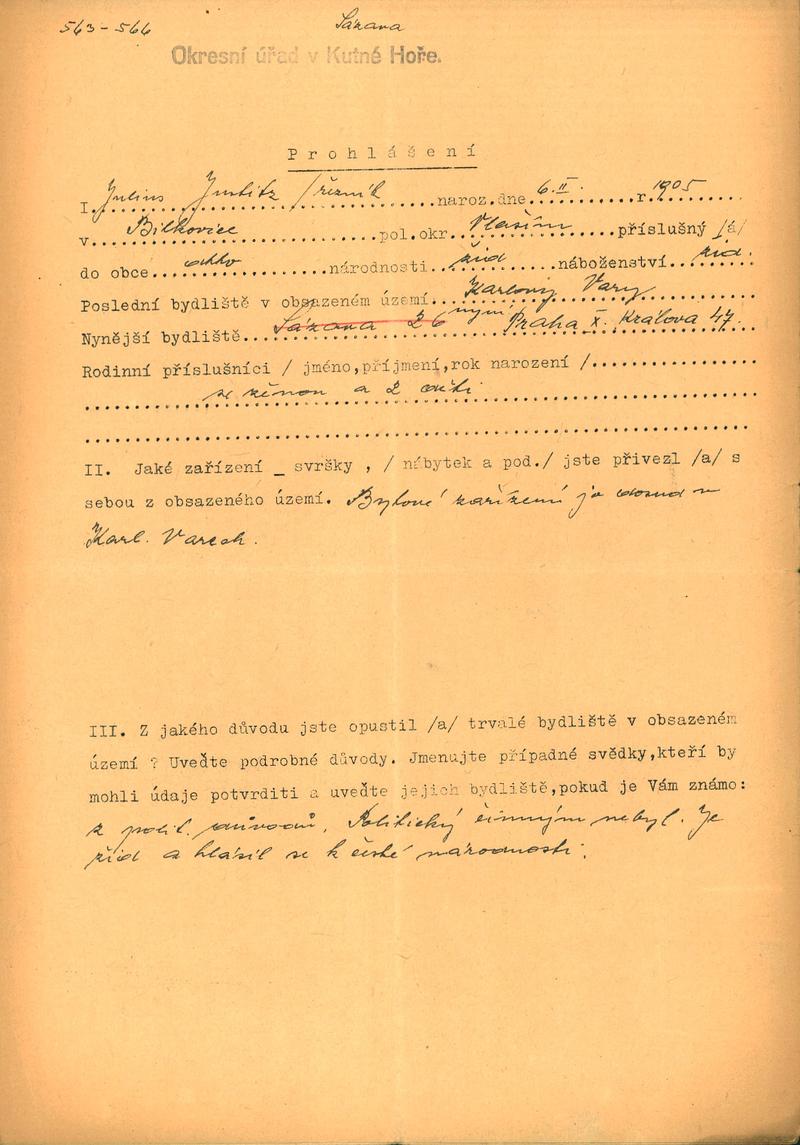 563-566 Sázava
Okresní úřad v Kutné Hoře.
Prohlášení
I. Julius Justitz /řezník naroz.dne 6.II. r. 1905
v Bílkovice pol.okr. Vlašim příslušný /á/
do obce národnosti žid náboženství žid.
Poslední bydliště v obsazeném území Karlovy Vary
Nynější bydliště Sázava 26 nyní Praha X. Králova 47.
Rodinní příslušníci / jméno,příjmení,rok narození /
se ženou a 2 dětí
II. Jaké zařízení _ svršky , / nábytek a pod./ jste přivezl /a/ s
sebou z obsazeného území. Bytové zařízení je dosud v
Karl. Varech.
III. Z jakého důvodu jste opustil /a/ trvalé bydliště v obsazeném
území ? Uveďte podrobné důvody. Jmenujte případné svědky,kteří by
mohli údaje potvrditi a uveďte jejich bydliště,pokud je Vám známo:
z polit. důvodů. Politicky činným nebyl. Je
žid a hlásil se k české národnosti.